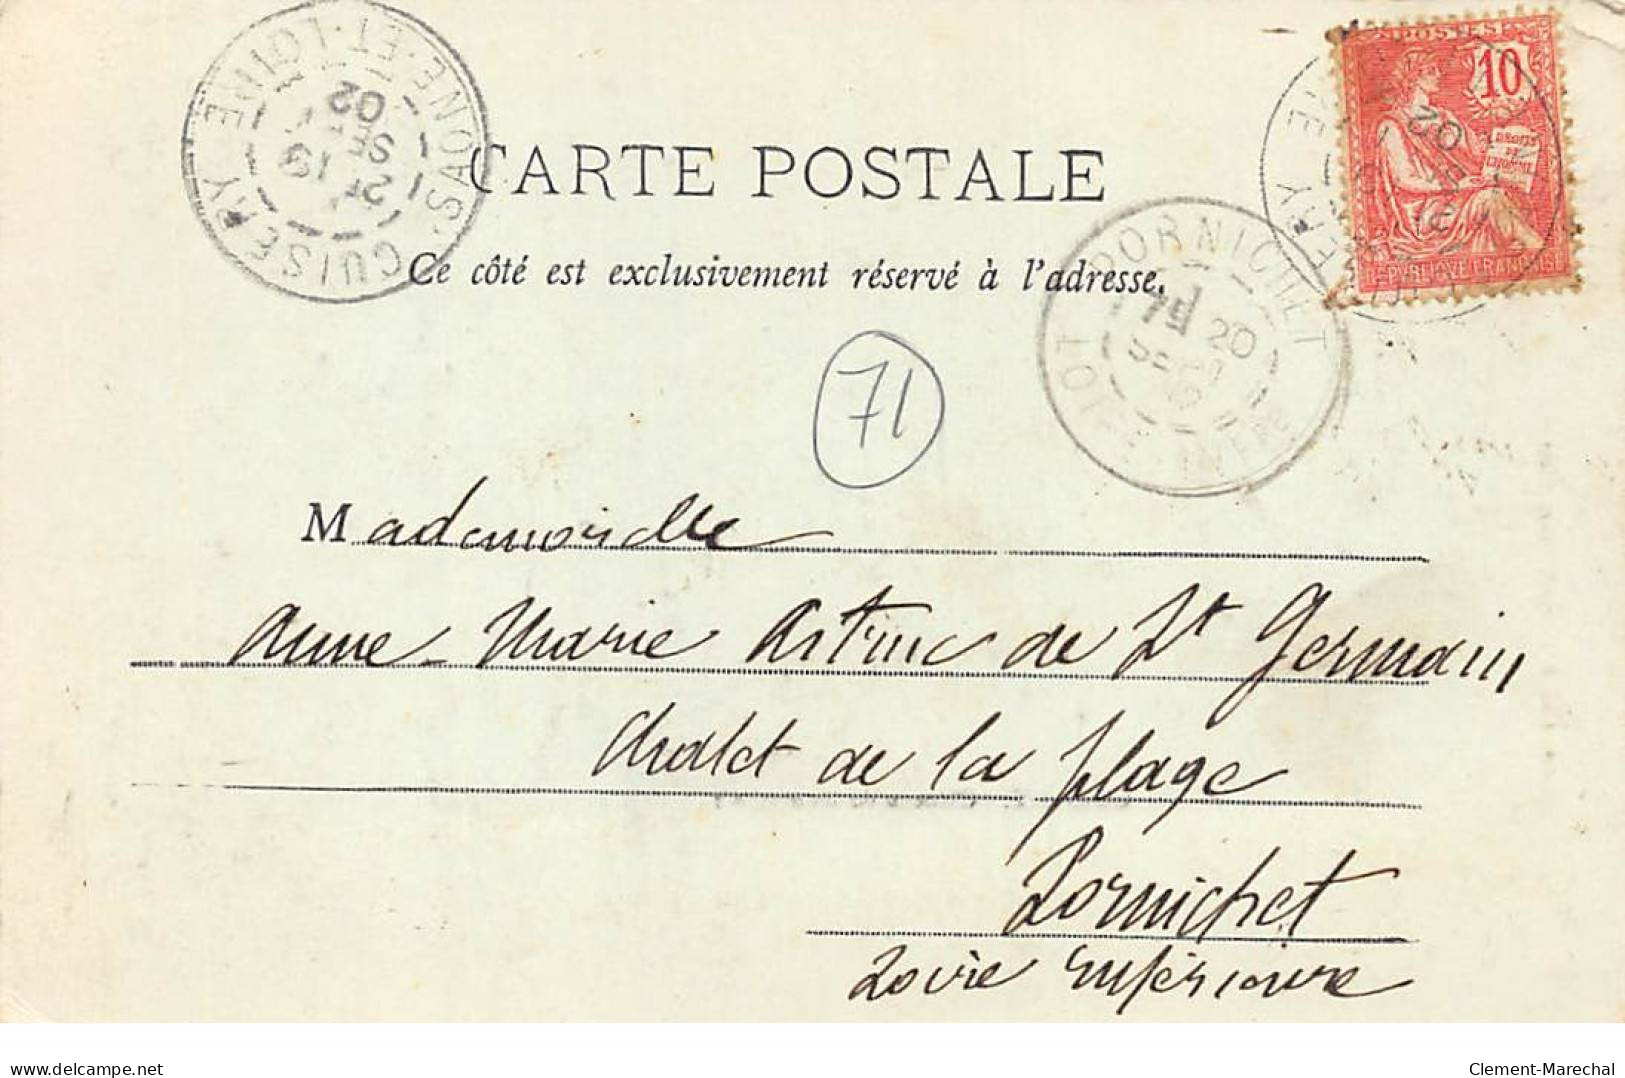 CUISERY
SAONE-ET-LOIRE
21
SE
02
POSTES
10
DROITS DE L'HOMME
REPUBLIQUE FRANÇAISE
CARTE POSTALE
Ce côté est exclusivement réservé à l'adresse.
PORNICHET
20
71
Mademoiselle
Anne-Marie Astruc de St Germain
Chalet de la plage
Pornichet
Loire Inférieure
www.delcampe.net
Clement-Marechal